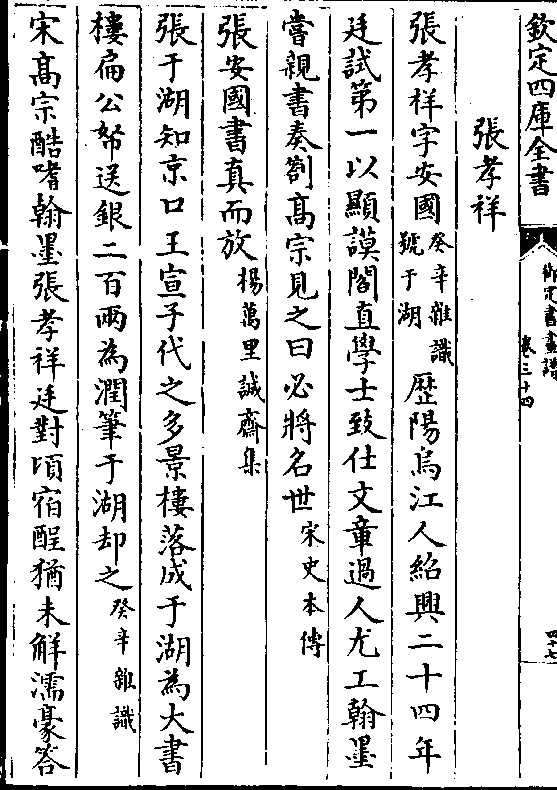 欽定四庫全書
御定書畫譜
卷三十四
四十七
張孝祥
張孝祥字安國癸辛雜識號于湖歴陽烏江人紹興二十四年
廷試第一以顯謨閣直學士致仕文章過人尤工翰墨
嘗親書奏劄高宗見之曰必將名世宋史本傳
張安國書真而放楊萬里誠齋集
張于湖知京口王宣子代之多景樓落成于湖為大書
樓扁公帑送銀二百兩為潤筆于湖却之癸辛雜識
宋高宗酷嗜翰墨張孝祥廷對頃宿酲猶未解濡豪答